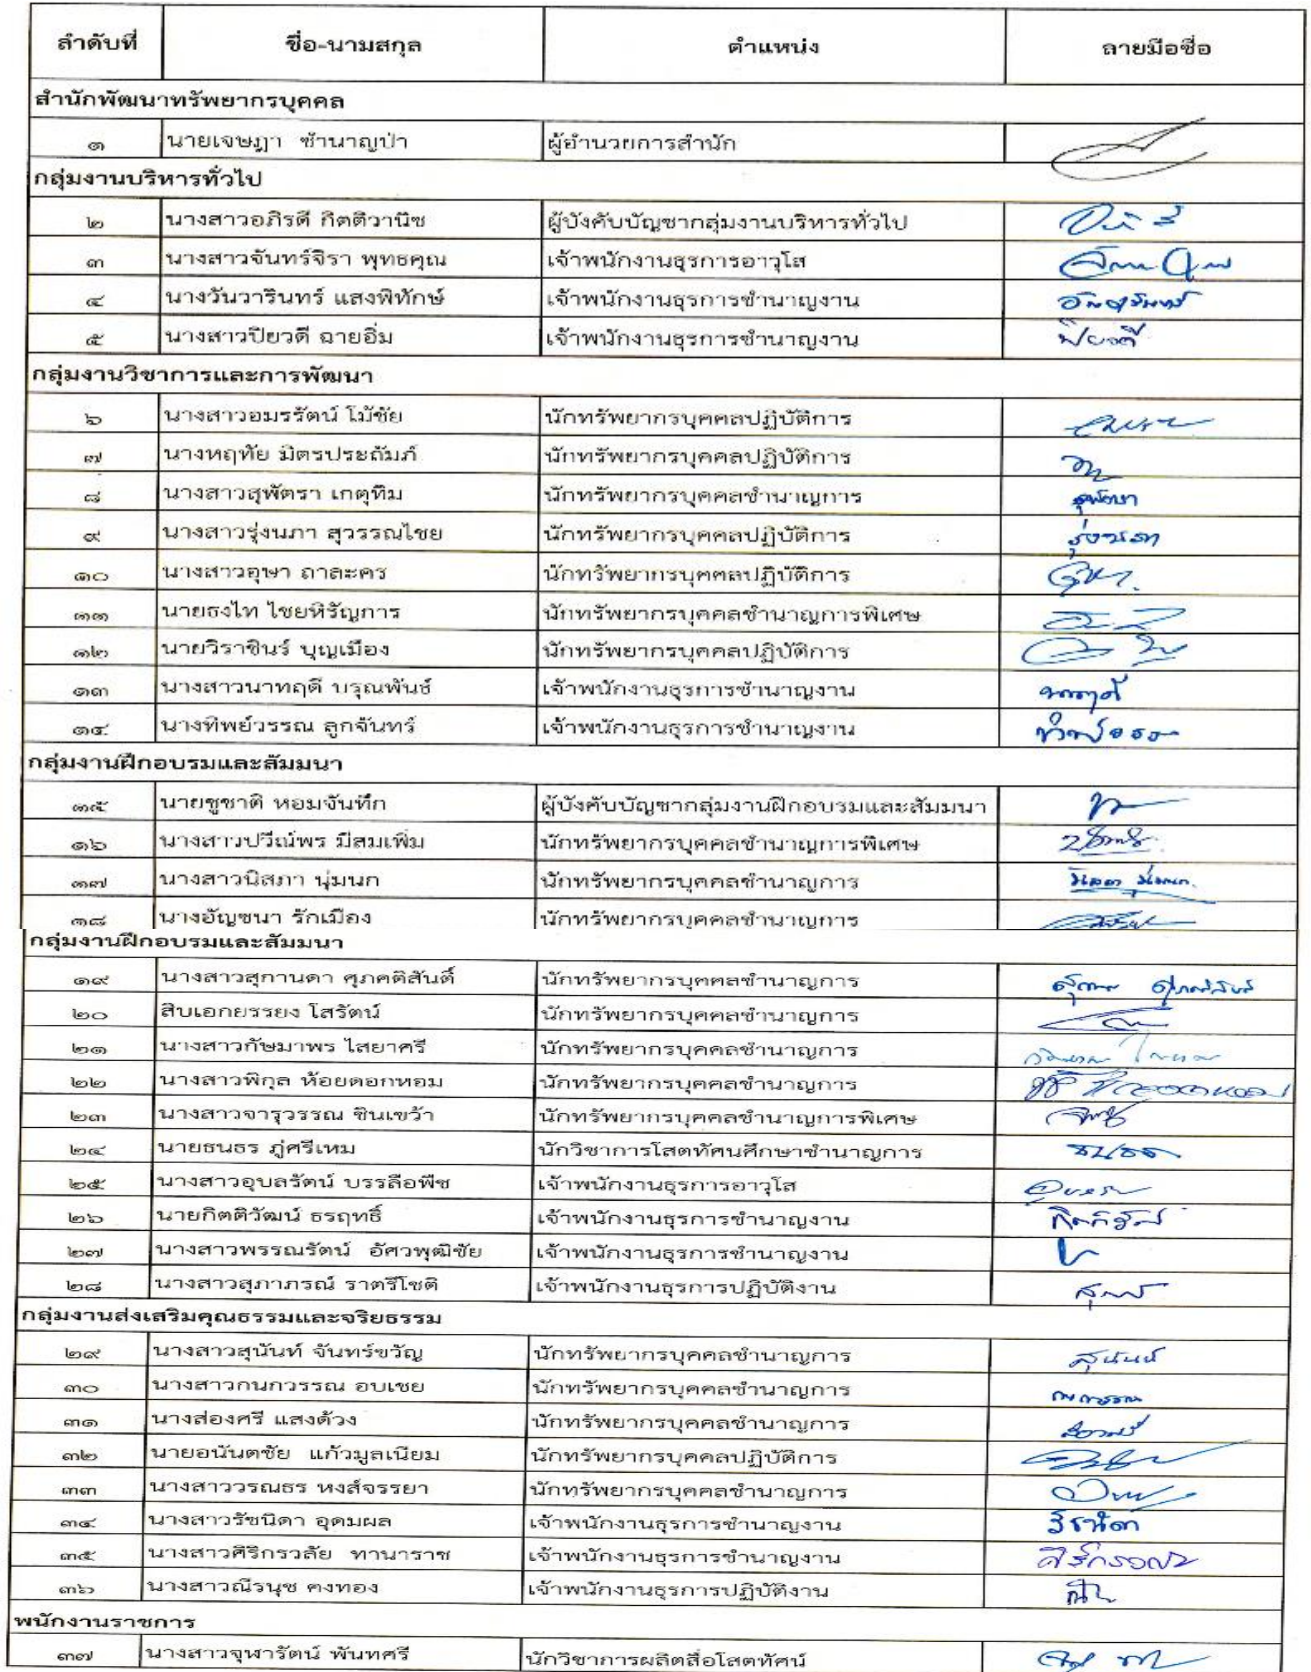 ลำดับที่ ชื่อ-นามสกุล ตำแหน่ง ลายมือชื่อ
สำนักพัฒนาทรัพยากรบุคคล
๑ นายเจษฎา ชำนาญป่า ผู้อำนวยการสำนัก
กลุ่มงานบริหารทั่วไป
๒ นางสาวอภิรดี กิตติวานิช ผู้บังคับบัญชากลุ่มงานบริหารทั่วไป
๓ นางสาวจันทร์จิรา พุทธคุณ เจ้าพนักงานธุรการอาวุโส
๔ นางวันวารินทร์ แสงพิทักษ์ เจ้าพนักงานธุรการชำนาญงาน
๕ นางสาวปิยวดี ฉายอิ่ม เจ้าพนักงานธุรการชำนาญงาน ปิยวดี
กลุ่มงานวิชาการและการพัฒนา
๖ นางสาวอมรรัตน์ โม้ชัย นักทรัพยากรบุคคลปฏิบัติการ
๗ นางหฤทัย มิตรประถัมภ์ นักทรัพยากรบุคคลปฏิบัติการ
๘ นางสาวสุพัตรา เกตุทิม นักทรัพยากรบุคคลชำนาญการ สุพัตรา
๙ นางสาวรุ่งนภา สุวรรณไชย นักทรัพยากรบุคคลปฏิบัติการ รุ่งนภา
๑๐ นางสาวอุษา ถาละคร นักทรัพยากรบุคคลปฏิบัติการ
๑๑ นายธงไท ไชยหิรัญการ นักทรัพยากรบุคคลชำนาญการพิเศษ
๑๒ นายวิราชินร์ บุญเมือง นักทรัพยากรบุคคลปฏิบัติการ
๑๓ นางสาวนาทฤดี บรุณพันธ์ เจ้าพนักงานธุรการชำนาญงาน
๑๔ นางทิพย์วรรณ ลูกจันทร์ เจ้าพนักงานธุรการชำนาญงาน
กลุ่มงานฝึกอบรมและสัมมนา
๑๕ นายชูชาติ หอมจันทึก ผู้บังคับบัญชากลุ่มงานฝึกอบรมและสัมมนา
๑๖ นางสาวปวีณ์พร มีสมเพิ่ม นักทรัพยากรบุคคลชำนาญการพิเศษ
๑๗ นางสาวนิสภา นุ่มนก นักทรัพยากรบุคคลชำนาญการ นิสภา นุ่มนก
๑๘ นางอัญชนา รักเมือง นักทรัพยากรบุคคลชำนาญการ
กลุ่มงานฝึกอบรมและสัมมนา
๑๙ นางสาวสุกานดา ศุภคติสันติ์ นักทรัพยากรบุคคลชำนาญการ
๒๐ สิบเอกยรรยง โสรัตน์ นักทรัพยากรบุคคลชำนาญการ
๒๑ นางสาวกัษมาพร ไสยาศรี นักทรัพยากรบุคคลชำนาญการ
๒๒ นางสาวพิกุล ห้อยดอกหอม นักทรัพยากรบุคคลชำนาญการ
๒๓ นางสาวจารุวรรณ ชินเขว้า นักทรัพยากรบุคคลชำนาญการพิเศษ
๒๔ นายธนธร ภู่ศรีเหม นักวิชาการโสตทัศนศึกษาชำนาญการ ธนธร
๒๕ นางสาวอุบลรัตน์ บรรลือพืช เจ้าพนักงานธุรการอาวุโส
๒๖ นายกิตติวัฒน์ ธรฤทธิ์ เจ้าพนักงานธุรการชำนาญงาน
๒๗ นางสาวพรรณรัตน์ อัศวพุฒิชัย เจ้าพนักงานธุรการชำนาญงาน
๒๘ นางสาวสุภาภรณ์ ราตรีโชติ เจ้าพนักงานธุรการปฏิบัติงาน
กลุ่มงานส่งเสริมคุณธรรมและจริยธรรม
๒๙ นางสาวสุนันท์ จันทร์ขวัญ นักทรัพยากรบุคคลชำนาญการ สุนันท์
๓๐ นางสาวกนกวรรณ อบเชย นักทรัพยากรบุคคลชำนาญการ กนกวรรณ
๓๑ นางส่องศรี แสงด้วง นักทรัพยากรบุคคลชำนาญการ
๓๒ นายอนันตชัย แก้วมูลเนียม นักทรัพยากรบุคคลปฏิบัติการ
๓๓ นางสาววรณธร หงส์จรรยา นักทรัพยากรบุคคลชำนาญการ
๓๔ นางสาวรัชนิดา อุดมผล เจ้าพนักงานธุรการชำนาญงาน
๓๕ นางสาวศิริกรวลัย ทานาราช เจ้าพนักงานธุรการชำนาญงาน
๓๖ นางสาวณีรนุช คงทอง เจ้าพนักงานธุรการปฏิบัติงาน
พนักงานราชการ
๓๗ นางสาวจุฬารัตน์ พันทศรี นักวิชาการผลิตสื่อโสตทัศน์